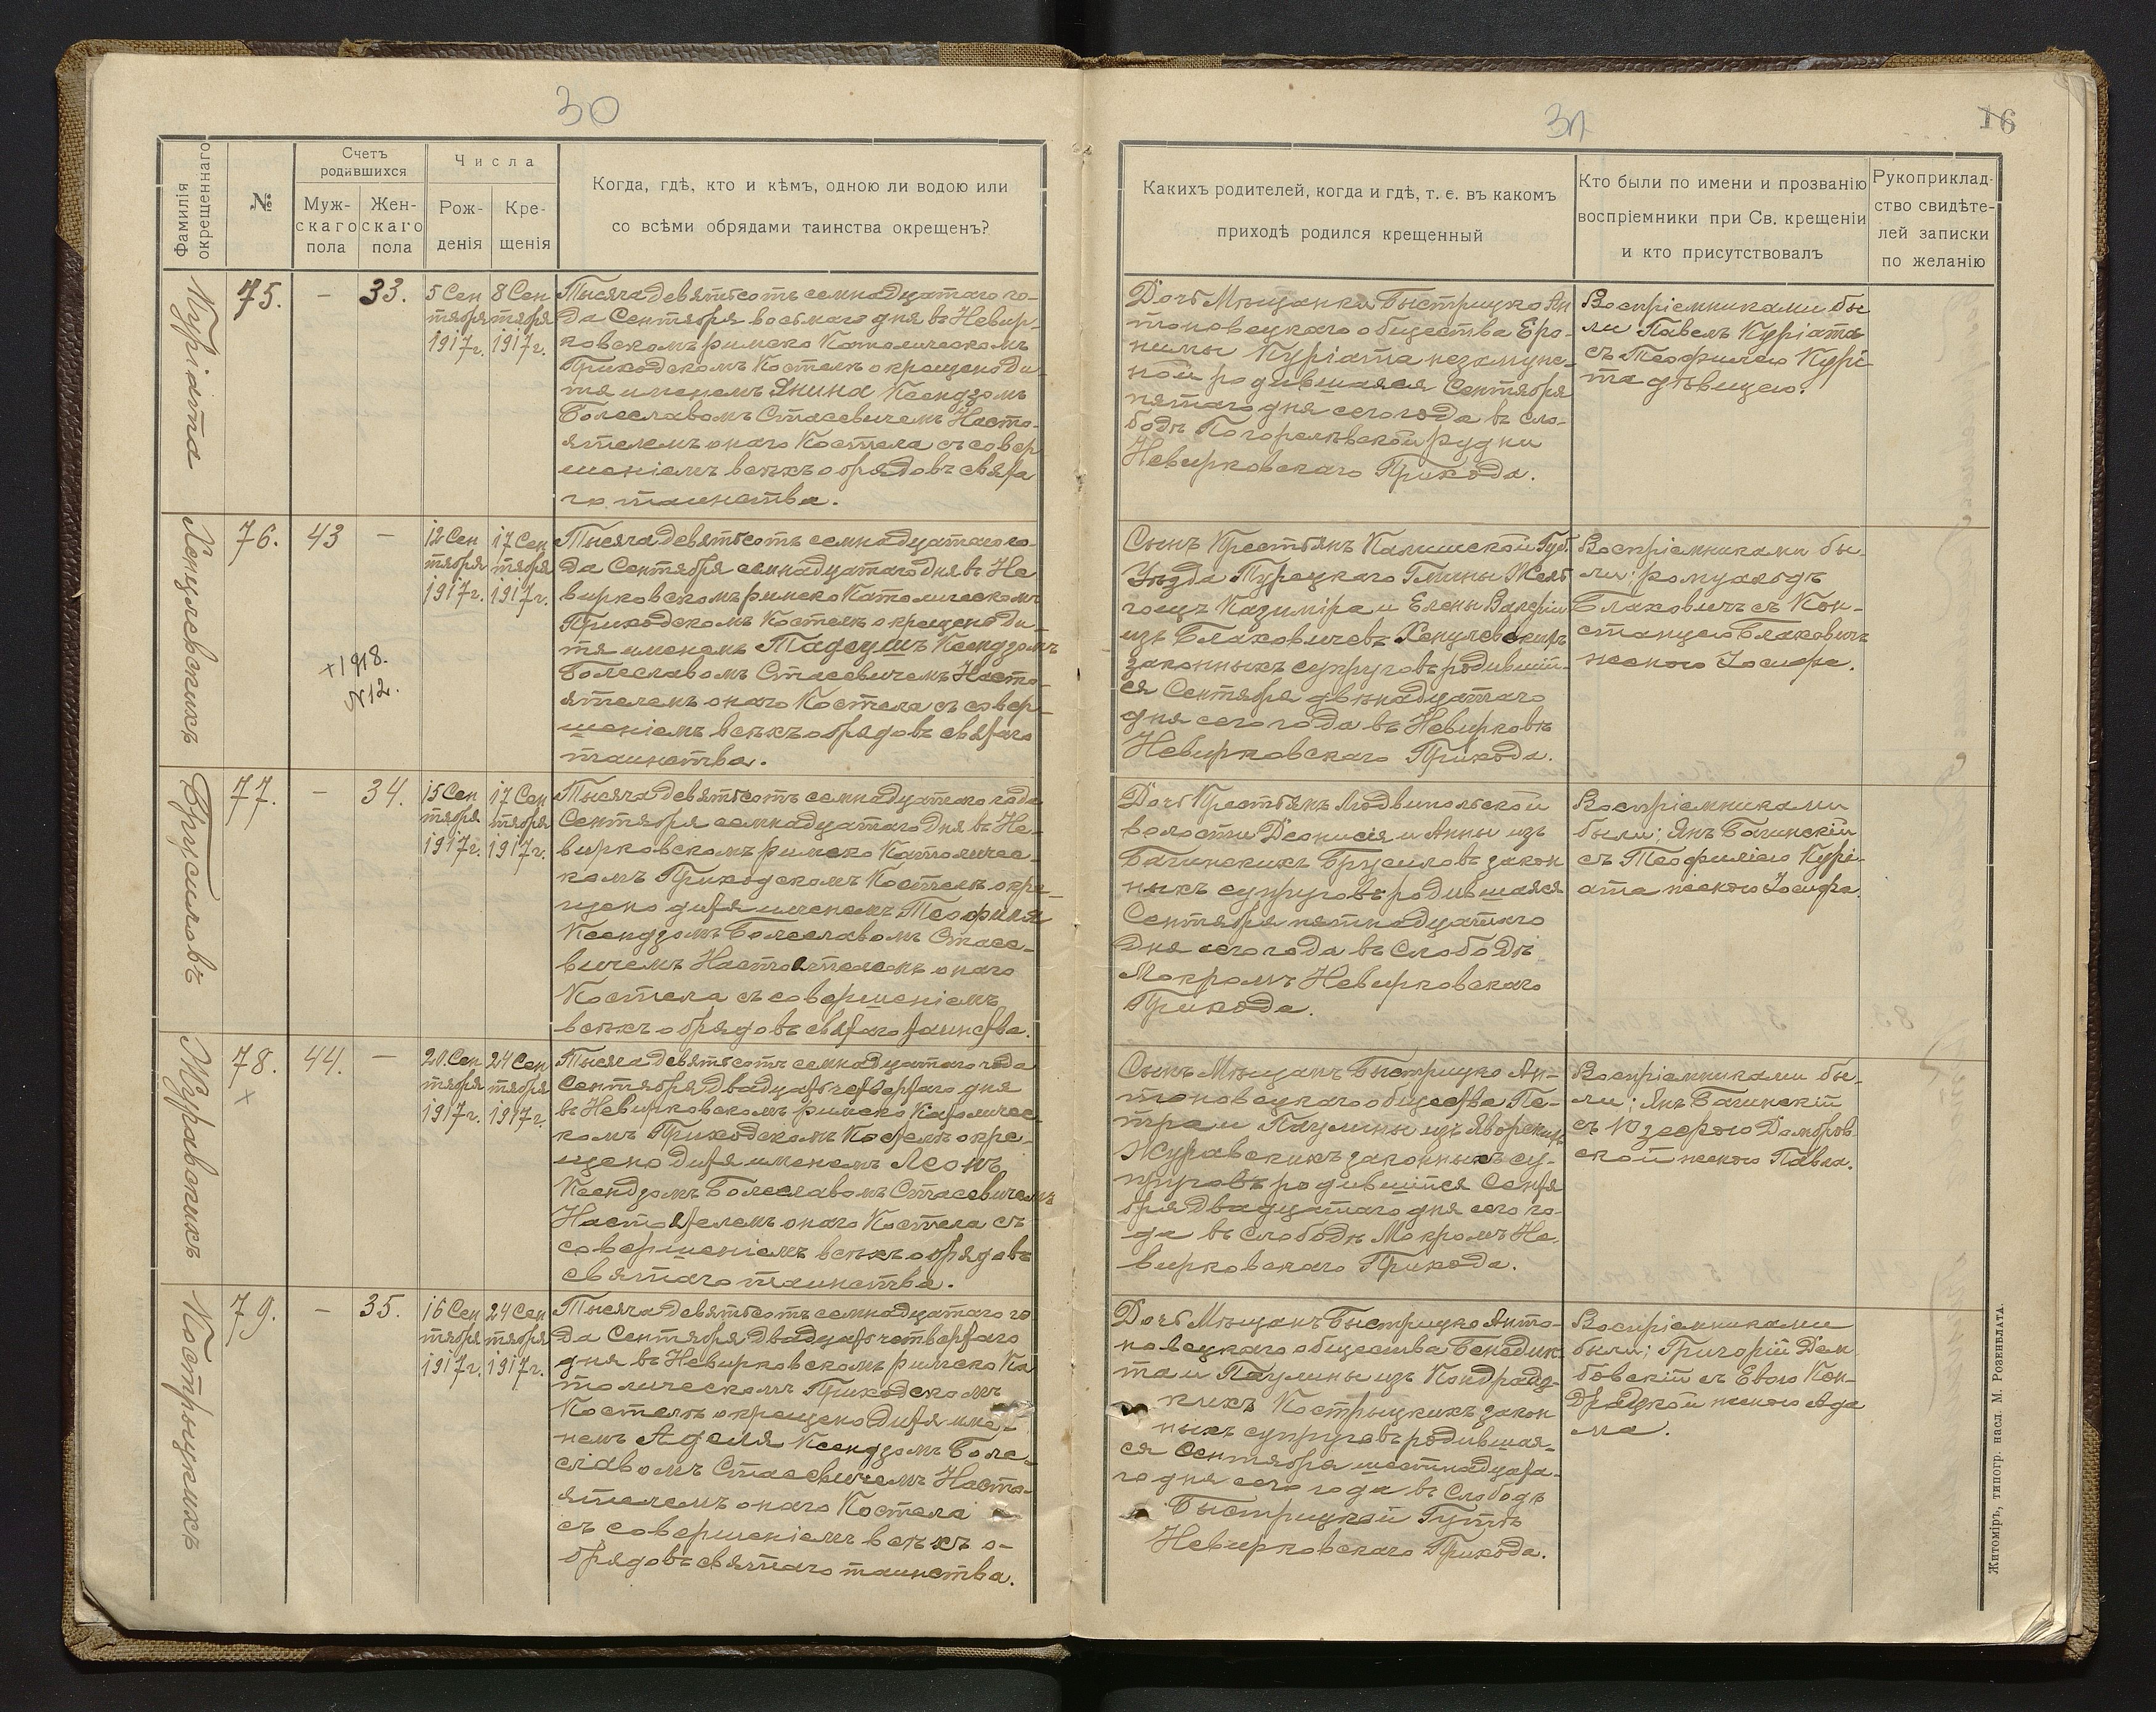 30
31
16
Фамилія окрещеннаго
№
Счетъ родившихся
Муж-скаго пола
Жен-скаго пола
Числа
Рож-денія
Кре-щенія
Когда, гдѣ, кто и кѣмъ, одною ли водою или
со всѣми обрядами таинства окрещенъ?
Какихъ родителей, когда и гдѣ, т. е. въ какомъ
приходѣ родился крещенный
Кто были по имени и прозванію
воспріемники при Св. крещеніи
и кто присутствовалъ
Рукоприклад-
ство свидѣте-
лей записки
по желанію
Куріята
75.
—
33.
5 Сен
тября
1917г.
8 Сен
тября
1917г.
Тысяча девятьсотъ семнадцатаго го-
да Сентября восьмаго дня въ Невир-
ковскомъ римско Католическомъ
Приходскомъ Костелѣ окрещено ди-
тя именемъ Янина Ксендзомъ
Болеславомъ Стасевичемъ Насто-
ятелемъ онаго Костела съ совер
шеніемъ всѣхъ обрядовъ свята
го таинства.
Дочь Мѣщанки Быстрицко Ан
тоновецкаго общества Еро-
нимы Куріята незамуж-
ной родившаяся Сентября
пятаго дня сего года въ Сло-
бодѣ Погорелѣвской рудни
Невирковскаго Прихода.
Воспріемниками бы
ли Павелъ Куріята
съ Теофилею Курі-
та дѣвицею.
Хенцлевскихъ
76.
43
—
12 Сен
тября
1917г.
17 Сен
тября
1917г.
+1918.
N12.
Тысяча девятьсотъ семнадцатаго го-
да Сентября семнадцатаго дня въ Не
вирковскомъ римско Католическомъ
Приходскомъ Костелѣ окрещено ди-
тя именемъ Тадеушъ Ксендзомъ
Болеславомъ Стасевичемъ Насто-
ятелемъ онаго Костела съ совер-
шеніемъ всѣхъ обрядовъ святаго
таинства.
Сынъ Крестьянъ Калишской Губ.
Уѣзда Турецкаго Гмины
Казиміра и Елены Валеріи
изъ Блаховичевъ
законныхъ супруговъ родившій-
ся Сентября двѣнадцатаго
дня сего года въ Невирковѣ
Невирковскаго Прихода.
Воспріемниками бы-
ли: ромуальдъ
Блаховичъ съ Кон-
станцею Блахович
женою Іосифа.
Брусиловъ
77.
—
34.
15 Сен
тября
1917г.
17 Сен
тября
1917г.
Тысяча девятьсотъ семнадцатаго года
Сентября семнадцатаго дня въ Не-
вирковскомъ римско Католичес-
комъ Приходскомъ Костелѣ окре
щено дитя именемъ Теофиля
Ксендзомъ Болеславомъ Стасе-
вичемъ Настоятелемъ онаго
Костела съ совершеніемъ
всѣхъ обрядовъ святаго таинства.
Дочь Крестьянъ Людвипольской
волости Діонисія и Анны изъ
Багинскихъ Брусиловъ закон
ныхъ супруговъ родившаяся
Сентября пятнадцатаго
дня сего года въ Слободѣ
Мокромъ Невирковскаго
Прихода.
Воспріемниками
были: Янъ Багинскій
съ Теофилею Курі-
ята женою Іосифа.
Журавскихъ
78.
×
44.
—
20 Сен
тября
1917г.
24 Сен
тября
1917г.
Тысяча девятьсотъ семнадцатаго года
Сентября двадцать четвертаго дня
въ Невирковскомъ римско Католичес
комъ Приходскомъ Костелѣ окре-
щено дитя именемъ Леонъ
Ксендзомъ Болеславомъ Стасевичемъ
Настоятелемъ онаго Костела съ
совершеніемъ всѣхъ обрядовъ
святаго таинства.
Сынъ Мѣщанъ Быстрицко Ан-
тоновецкаго общества Пе-
тра и Паулины изъ Яворскихъ
Журавскихъ законныхъ су-
пруговъ родившійся Сентя
бря двадцатаго дня сего го-
да въ Слободѣ Мокромъ Не-
вирковскаго Прихода.
Воспріемниками бы-
ли: Янъ Багинскій
съ Юзефою Домбров
ской женою Павла.
Кострыцкихъ
79.
—
35.
16 Сен
тября
1917г.
24 Сен
тября
1917г.
Тысяча девятьсотъ семнадцатаго го
да Сентября двадцать четвертаго
дня въ Невирковскомъ римско Ка
толическомъ Приходскомъ
Костелѣ окрещено дитя име-
немъ Аделя Ксендзомъ Боле-
славомъ Стасевичемъ Насто-
ятелемъ онаго Костела
съ совершеніемъ всѣхъ о-
брядовъ святаго таинства.
Дочь Мѣщанъ Быстрицко Анто-
новецкаго общества Бенедик-
та и Паулины изъ Кондрацц-
кихъ Кострыцкихъ закон
ныхъ супруговъ родившая-
ся Сентября шестнадцата-
го дня сего года въ Слободѣ
Быстрицкой Гутѣ
Невирковскаго Прихода.
Воспріемниками
были: Григорій Дем
бовскій съ Евою Кон-
драцкой женою Ада
ма.
Житоміръ, типогр. насл. М. Розенблата.